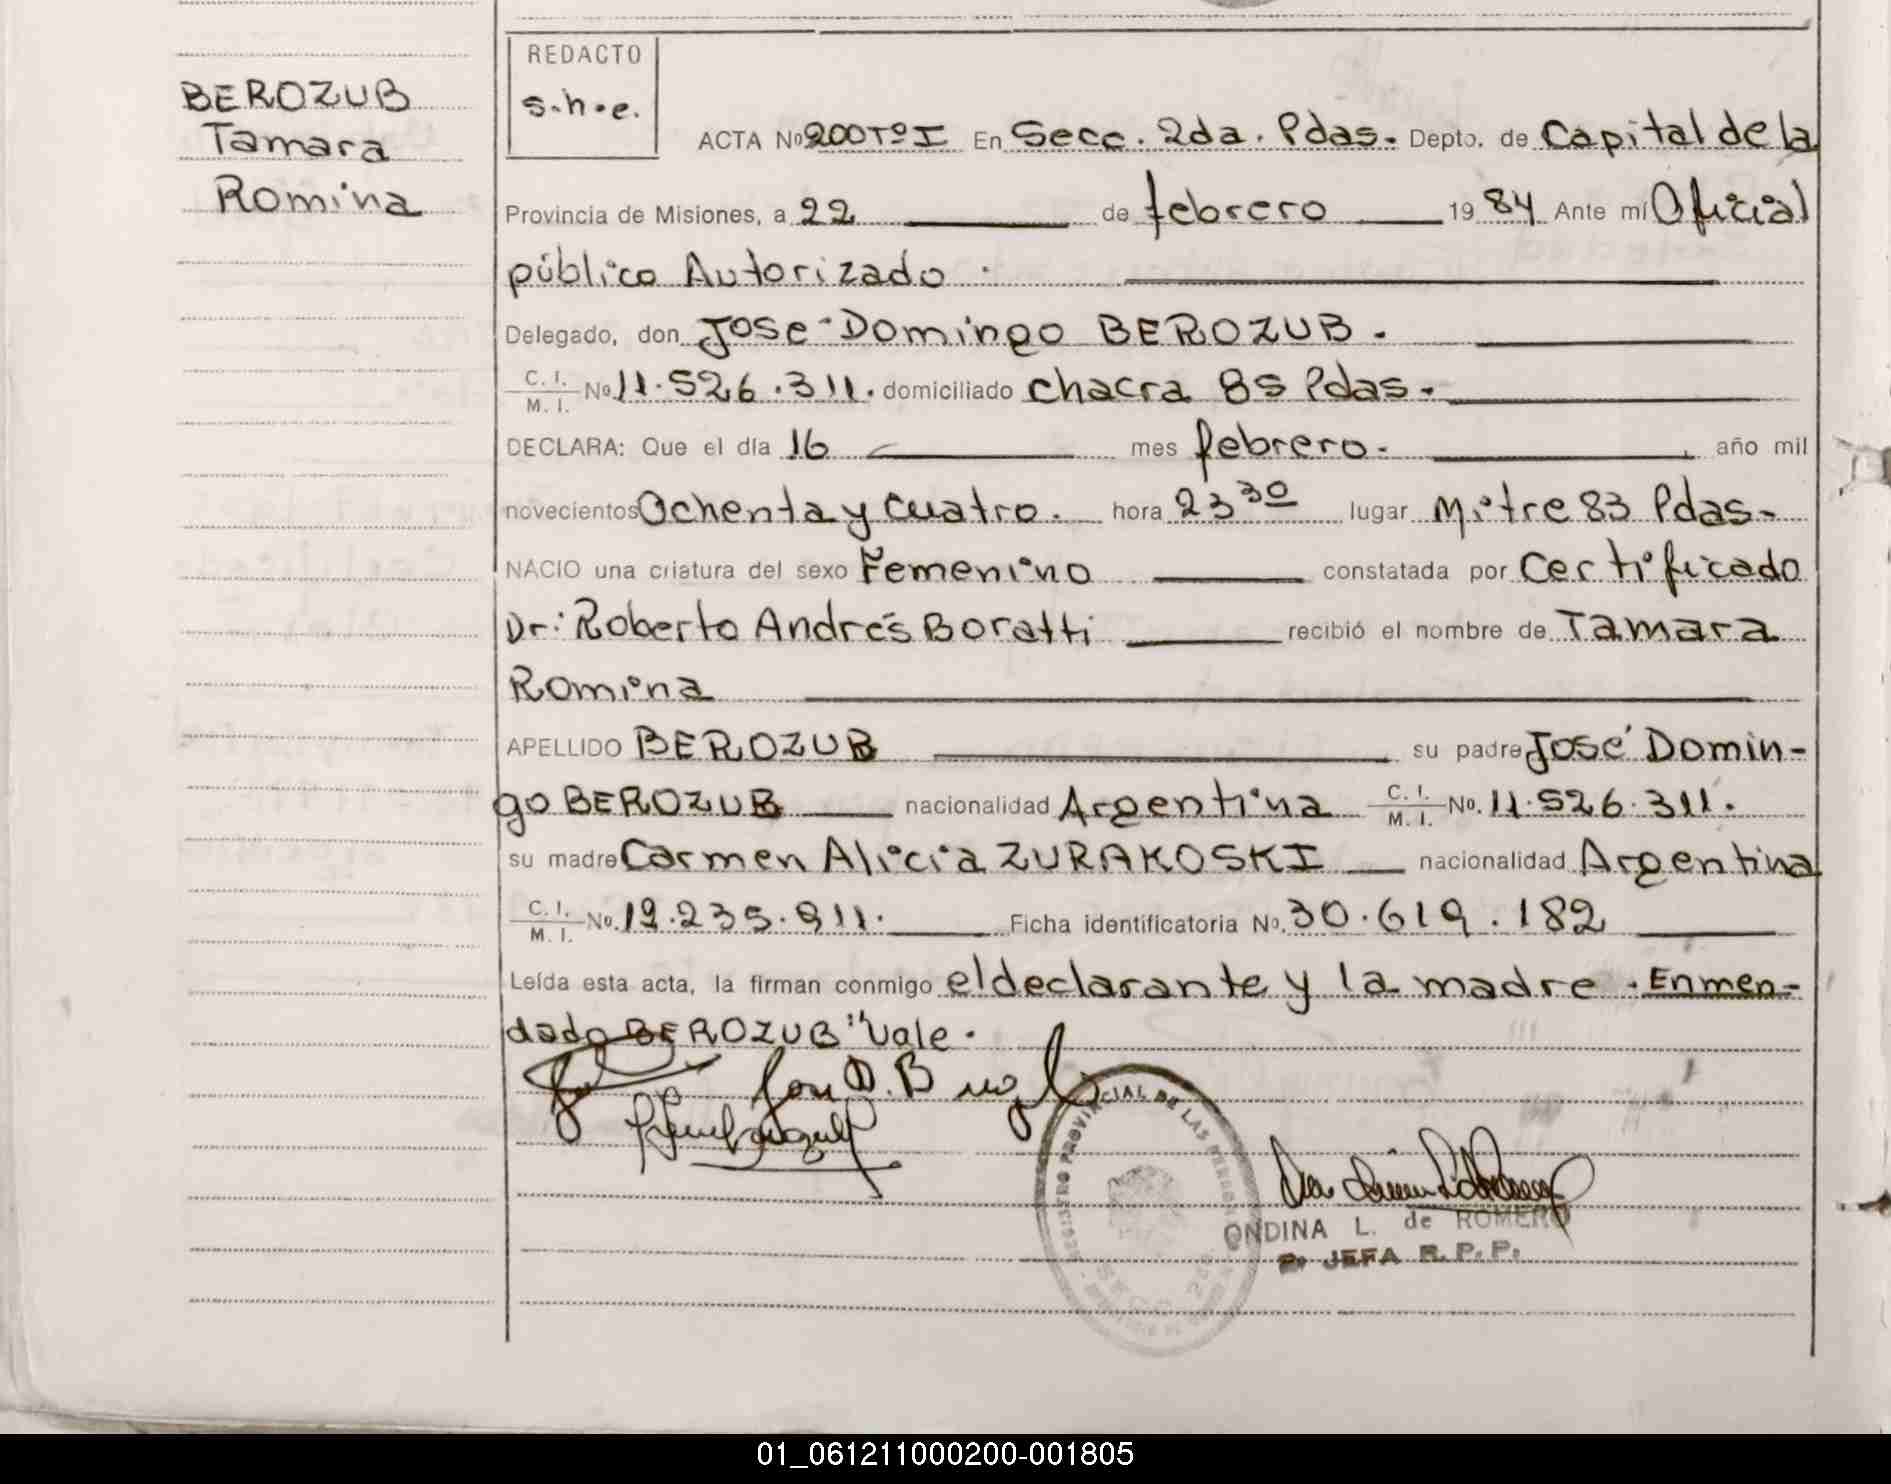 BEROZUB
Tamara
Romina
REDACTO
s.h.e.
ACTA Nº 200 Tº I En Secc. 2da. Pdas. Depto. de Capital de la
Provincia de Misiones, a 22 de febrero 19 84 Ante mí Oficial
público Autorizado.
Delegado, don Jose Domingo BEROZUB.
C. I. M. I. Nº 11.526.311. domiciliado chacra 85 Pdas.
DECLARA: Que el día 16 mes febrero. año mil
novecientos Ochenta y cuatro. hora 23 30 lugar Mitre 83 Pdas-
NACIO una criatura del sexo Femenino constatada por Certificado
Dr: Roberto Andrés Boratti recibió el nombre de Tamara
Romina
APELLIDO BEROZUB su padre José Domin-
go BEROZUB nacionalidad Argentina C. I. M. I. Nº. 11.526.311.
su madre Carmen Alicia ZURAKOSKI nacionalidad Argentina
C. I. M. I. Nº. 19.235.911. Ficha identificatoria Nº. 30.619.182
Leída esta acta, la firman conmigo el declarante y la madre. Enmen-
dado BEROZUB "Vale.
REGISTRO PROVINCIAL DE LAS PERSONAS
ONDINA L. de ROMERO
JEFA R. P. P.
01_061211000200-001805